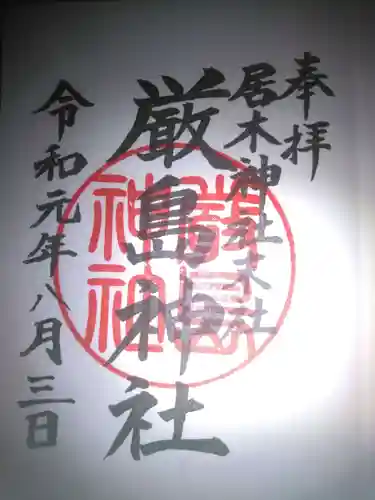 奉拝
居木神社末社
厳島神社
令和元年八月三日
厳島
神社